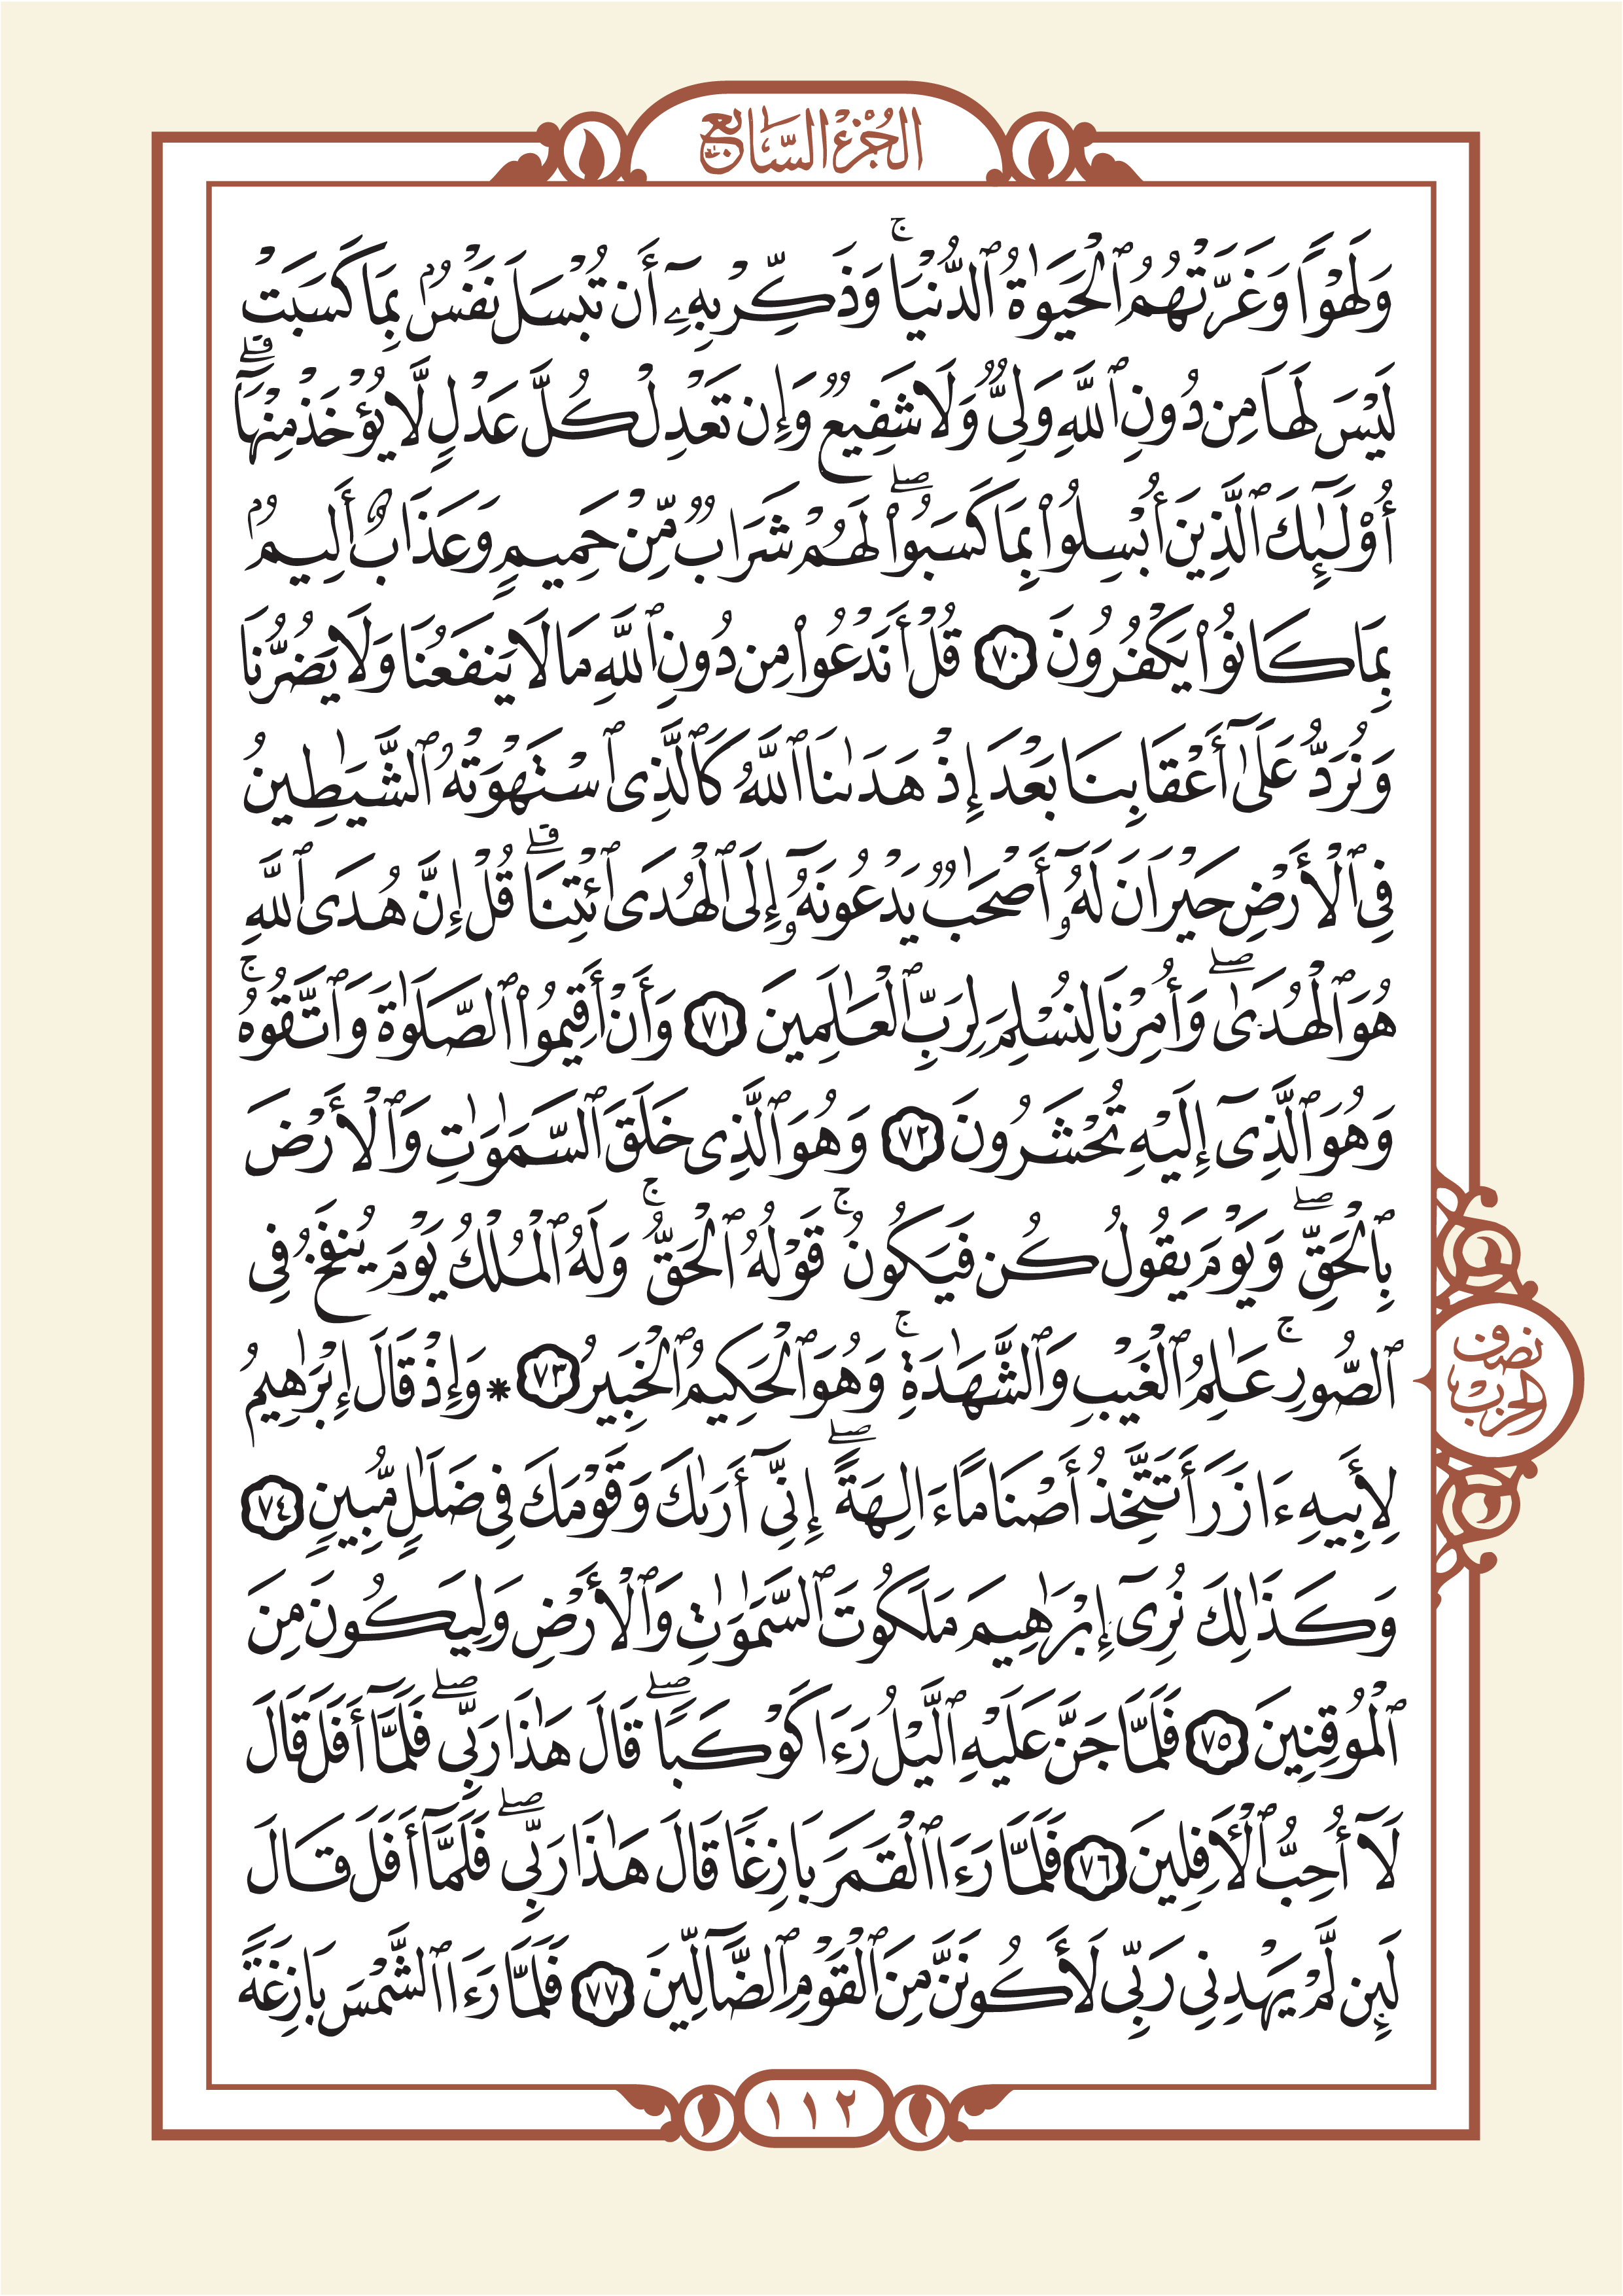 الجُزْءُ السَّابِعُ
وَلَهْوًا وَغَرَّتْهُمُ ٱلْحَيَوٰةُ ٱلدُّنْيَا ۚ وَذَكِّرْ بِهِۦٓ أَن تُبْسَلَ نَفْسٌۢ بِمَا كَسَبَتْ
لَيْسَ لَهَا مِن دُونِ ٱللَّهِ وَلِىٌّ وَلَا شَفِيعٌ وَإِن تَعْدِلْ كُلَّ عَدْلٍ لَّا يُؤْخَذْ مِنْهَآ ۗ
أُو۟لَـٰٓئِكَ ٱلَّذِينَ أُبْسِلُوا۟ بِمَا كَسَبُوا۟ ۖ لَهُمْ شَرَابٌ مِّنْ حَمِيمٍ وَعَذَابٌ أَلِيمٌۢ
بِمَا كَانُوا۟ يَكْفُرُونَ ٧٠ قُلْ أَنَدْعُوا۟ مِن دُونِ ٱللَّهِ مَا لَا يَنفَعُنَا وَلَا يَضُرُّنَا
وَنُرَدُّ عَلَىٰٓ أَعْقَابِنَا بَعْدَ إِذْ هَدَىٰنَا ٱللَّهُ كَٱلَّذِى ٱسْتَهْوَتْهُ ٱلشَّيَـٰطِينُ
فِى ٱلْأَرْضِ حَيْرَانَ لَهُۥٓ أَصْحَـٰبٌ يَدْعُونَهُۥٓ إِلَى ٱلْهُدَى ٱئْتِنَا ۗ قُلْ إِنَّ هُدَى ٱللَّهِ
هُوَ ٱلْهُدَىٰ ۖ وَأُمِرْنَا لِنُسْلِمَ لِرَبِّ ٱلْعَـٰلَمِينَ ٧١ وَأَنْ أَقِيمُوا۟ ٱلصَّلَوٰةَ وَٱتَّقُوهُ ۚ
وَهُوَ ٱلَّذِىٓ إِلَيْهِ تُحْشَرُونَ ٧٢ وَهُوَ ٱلَّذِى خَلَقَ ٱلسَّمَـٰوَٰتِ وَٱلْأَرْضَ
بِٱلْحَقِّ ۖ وَيَوْمَ يَقُولُ كُن فَيَكُونُ ۚ قَوْلُهُ ٱلْحَقُّ ۚ وَلَهُ ٱلْمُلْكُ يَوْمَ يُنفَخُ فِى
ٱلصُّورِ ۚ عَـٰلِمُ ٱلْغَيْبِ وَٱلشَّهَـٰدَةِ ۚ وَهُوَ ٱلْحَكِيمُ ٱلْخَبِيرُ ٧٣ * وَإِذْ قَالَ إِبْرَٰهِيمُ
نصف
الحزب
لِأَبِيهِ ءَازَرَ أَتَتَّخِذُ أَصْنَامًا ءَالِهَةً ۖ إِنِّىٓ أَرَىٰكَ وَقَوْمَكَ فِى ضَلَـٰلٍ مُّبِينٍ ٧٤
وَكَذَٰلِكَ نُرِىٓ إِبْرَٰهِيمَ مَلَكُوتَ ٱلسَّمَـٰوَٰتِ وَٱلْأَرْضِ وَلِيَكُونَ مِنَ
ٱلْمُوقِنِينَ ٧٥ فَلَمَّا جَنَّ عَلَيْهِ ٱلَّيْلُ رَءَا كَوْكَبًا ۖ قَالَ هَـٰذَا رَبِّى ۖ فَلَمَّآ أَفَلَ قَالَ
لَآ أُحِبُّ ٱلْـَٔافِلِينَ ٧٦ فَلَمَّا رَءَا ٱلْقَمَرَ بَازِغًا قَالَ هَـٰذَا رَبِّى ۖ فَلَمَّآ أَفَلَ قَالَ
لَئِن لَّمْ يَهْدِنِى رَبِّى لَأَكُونَنَّ مِنَ ٱلْقَوْمِ ٱلضَّآلِّينَ ٧٧ فَلَمَّا رَءَا ٱلشَّمْسَ بَازِغَةً
١١٢